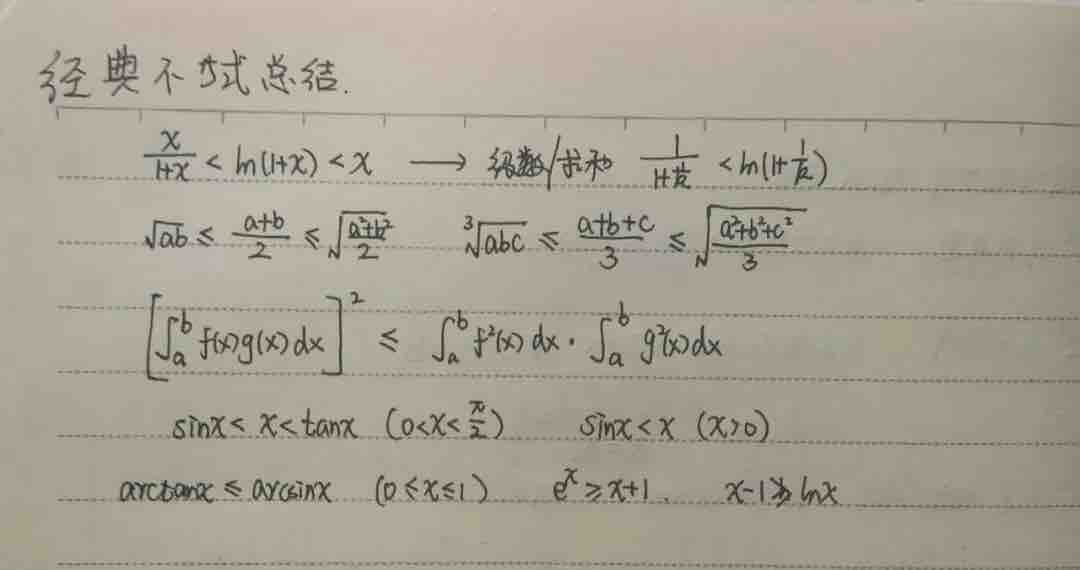 经典不等式总结.
x/(1+x) < ln(1+x) < x → 级数/求和 1/(1+k) < ln(1+1/k)
√ab ≤ (a+b)/2 ≤ √((a²+b²)/2) ∛abc ≤ (a+b+c)/3 ≤ √((a²+b²+c²)/3)
[∫ₐᵇ f(x)g(x)dx]² ≤ ∫ₐᵇ f²(x)dx · ∫ₐᵇ g²(x)dx
sinx < x < tanx (0<x<π/2) sinx < x (x>0)
arctanx ≤ arcsinx (0≤x≤1) eˣ ≥ x+1. x-1 ≥ lnx